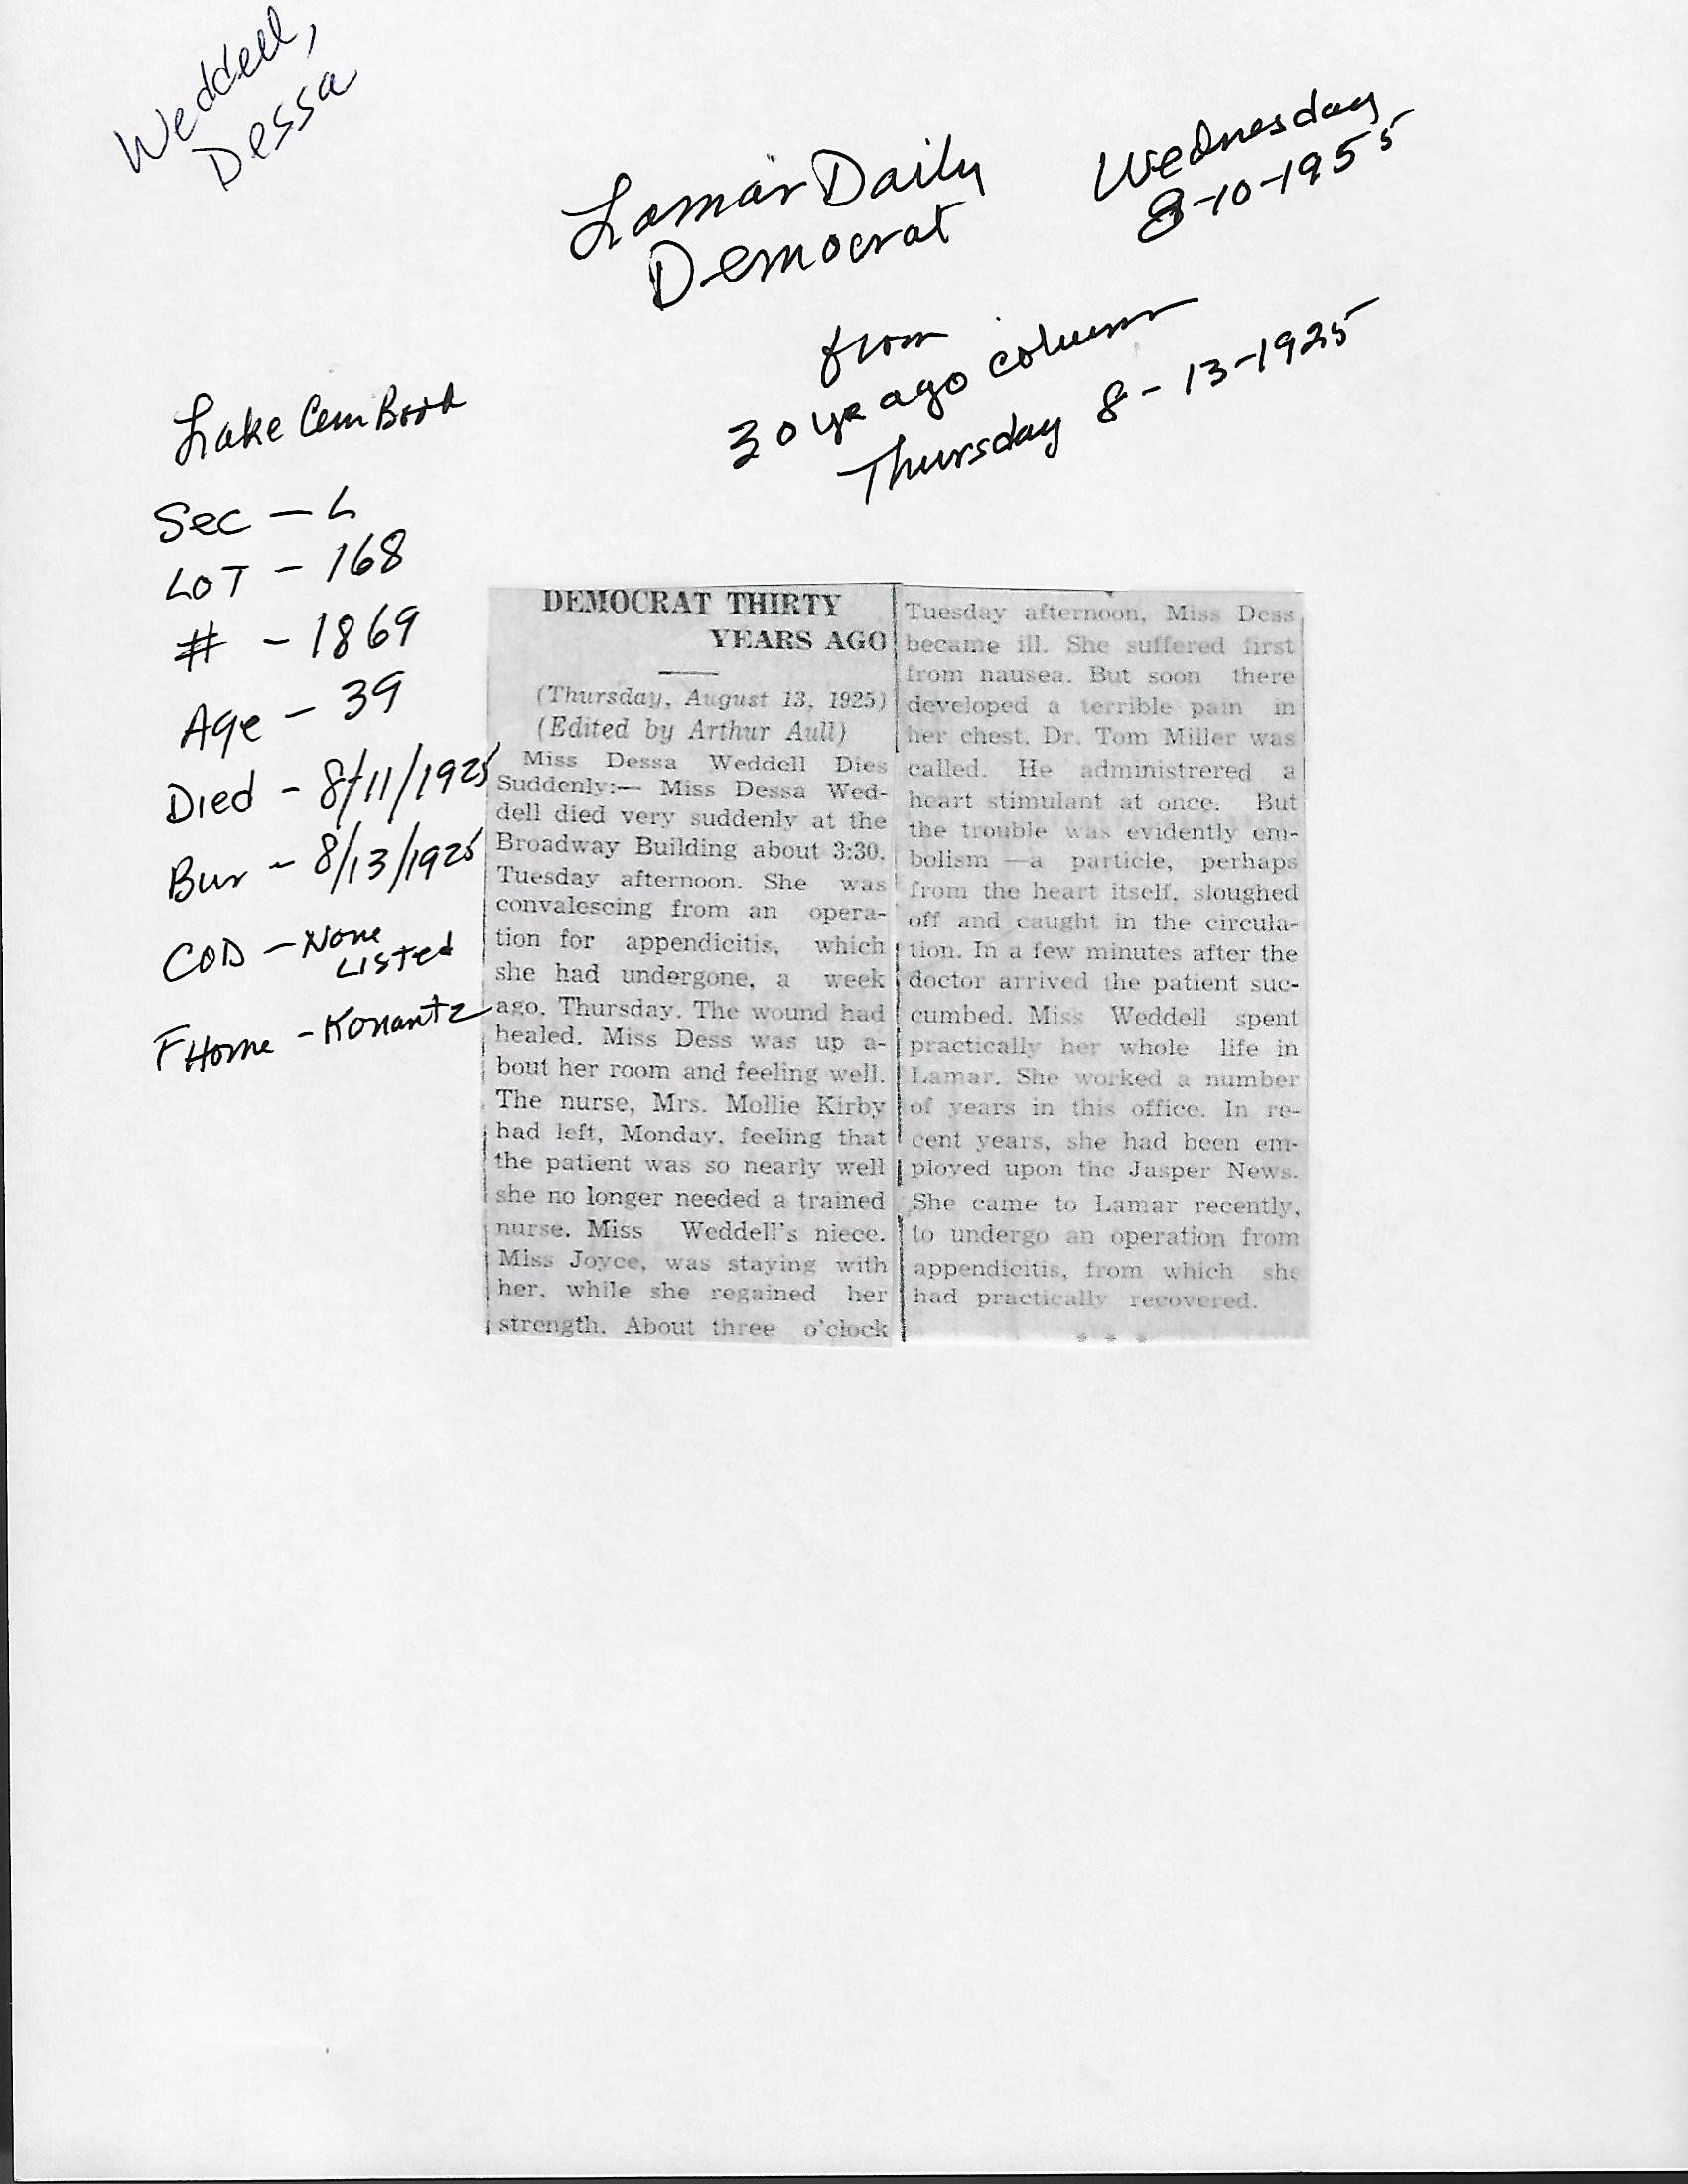 Weddell,
Dessa
Lamar Daily
Democrat
Wednesday
8-10-1955
from
30 yr ago column
Thursday 8-13-1925
Lake Cem Book
Sec - L
LOT - 168
# - 1869
Age - 39
Died - 8/11/1925
Bur - 8/13/1925
COD - None
Listed
F Home - Konantz
DEMOCRAT THIRTY
YEARS AGO
(Thursday, August 13, 1925)
(Edited by Arthur Aull)
Miss Dessa Weddell Dies
Suddenly:— Miss Dessa Wed-
dell died very suddenly at the
Broadway Building about 3:30,
Tuesday afternoon. She was
convalescing from an opera-
tion for appendicitis, which
she had undergone, a week
ago, Thursday. The wound had
healed. Miss Dess was up a-
bout her room and feeling well.
The nurse, Mrs. Mollie Kirby
had left, Monday, feeling that
the patient was so nearly well
she no longer needed a trained
nurse. Miss Weddell's niece.
Miss Joyce, was staying with
her, while she regained her
strength. About three o'clock
Tuesday afternoon, Miss Dess
became ill. She suffered first
from nausea. But soon there
developed a terrible pain in
her chest. Dr. Tom Miller was
called. He administrered a
heart stimulant at once. But
the trouble was evidently em-
bolism —a particle, perhaps
from the heart itself, sloughed
off and caught in the circula-
tion. In a few minutes after the
doctor arrived the patient suc-
cumbed. Miss Weddell spent
practically her whole life in
Lamar. She worked a number
of years in this office. In re-
cent years, she had been em-
ployed upon the Jasper News.
She came to Lamar recently,
to undergo an operation from
appendicitis, from which she
had practically recovered.
* * *